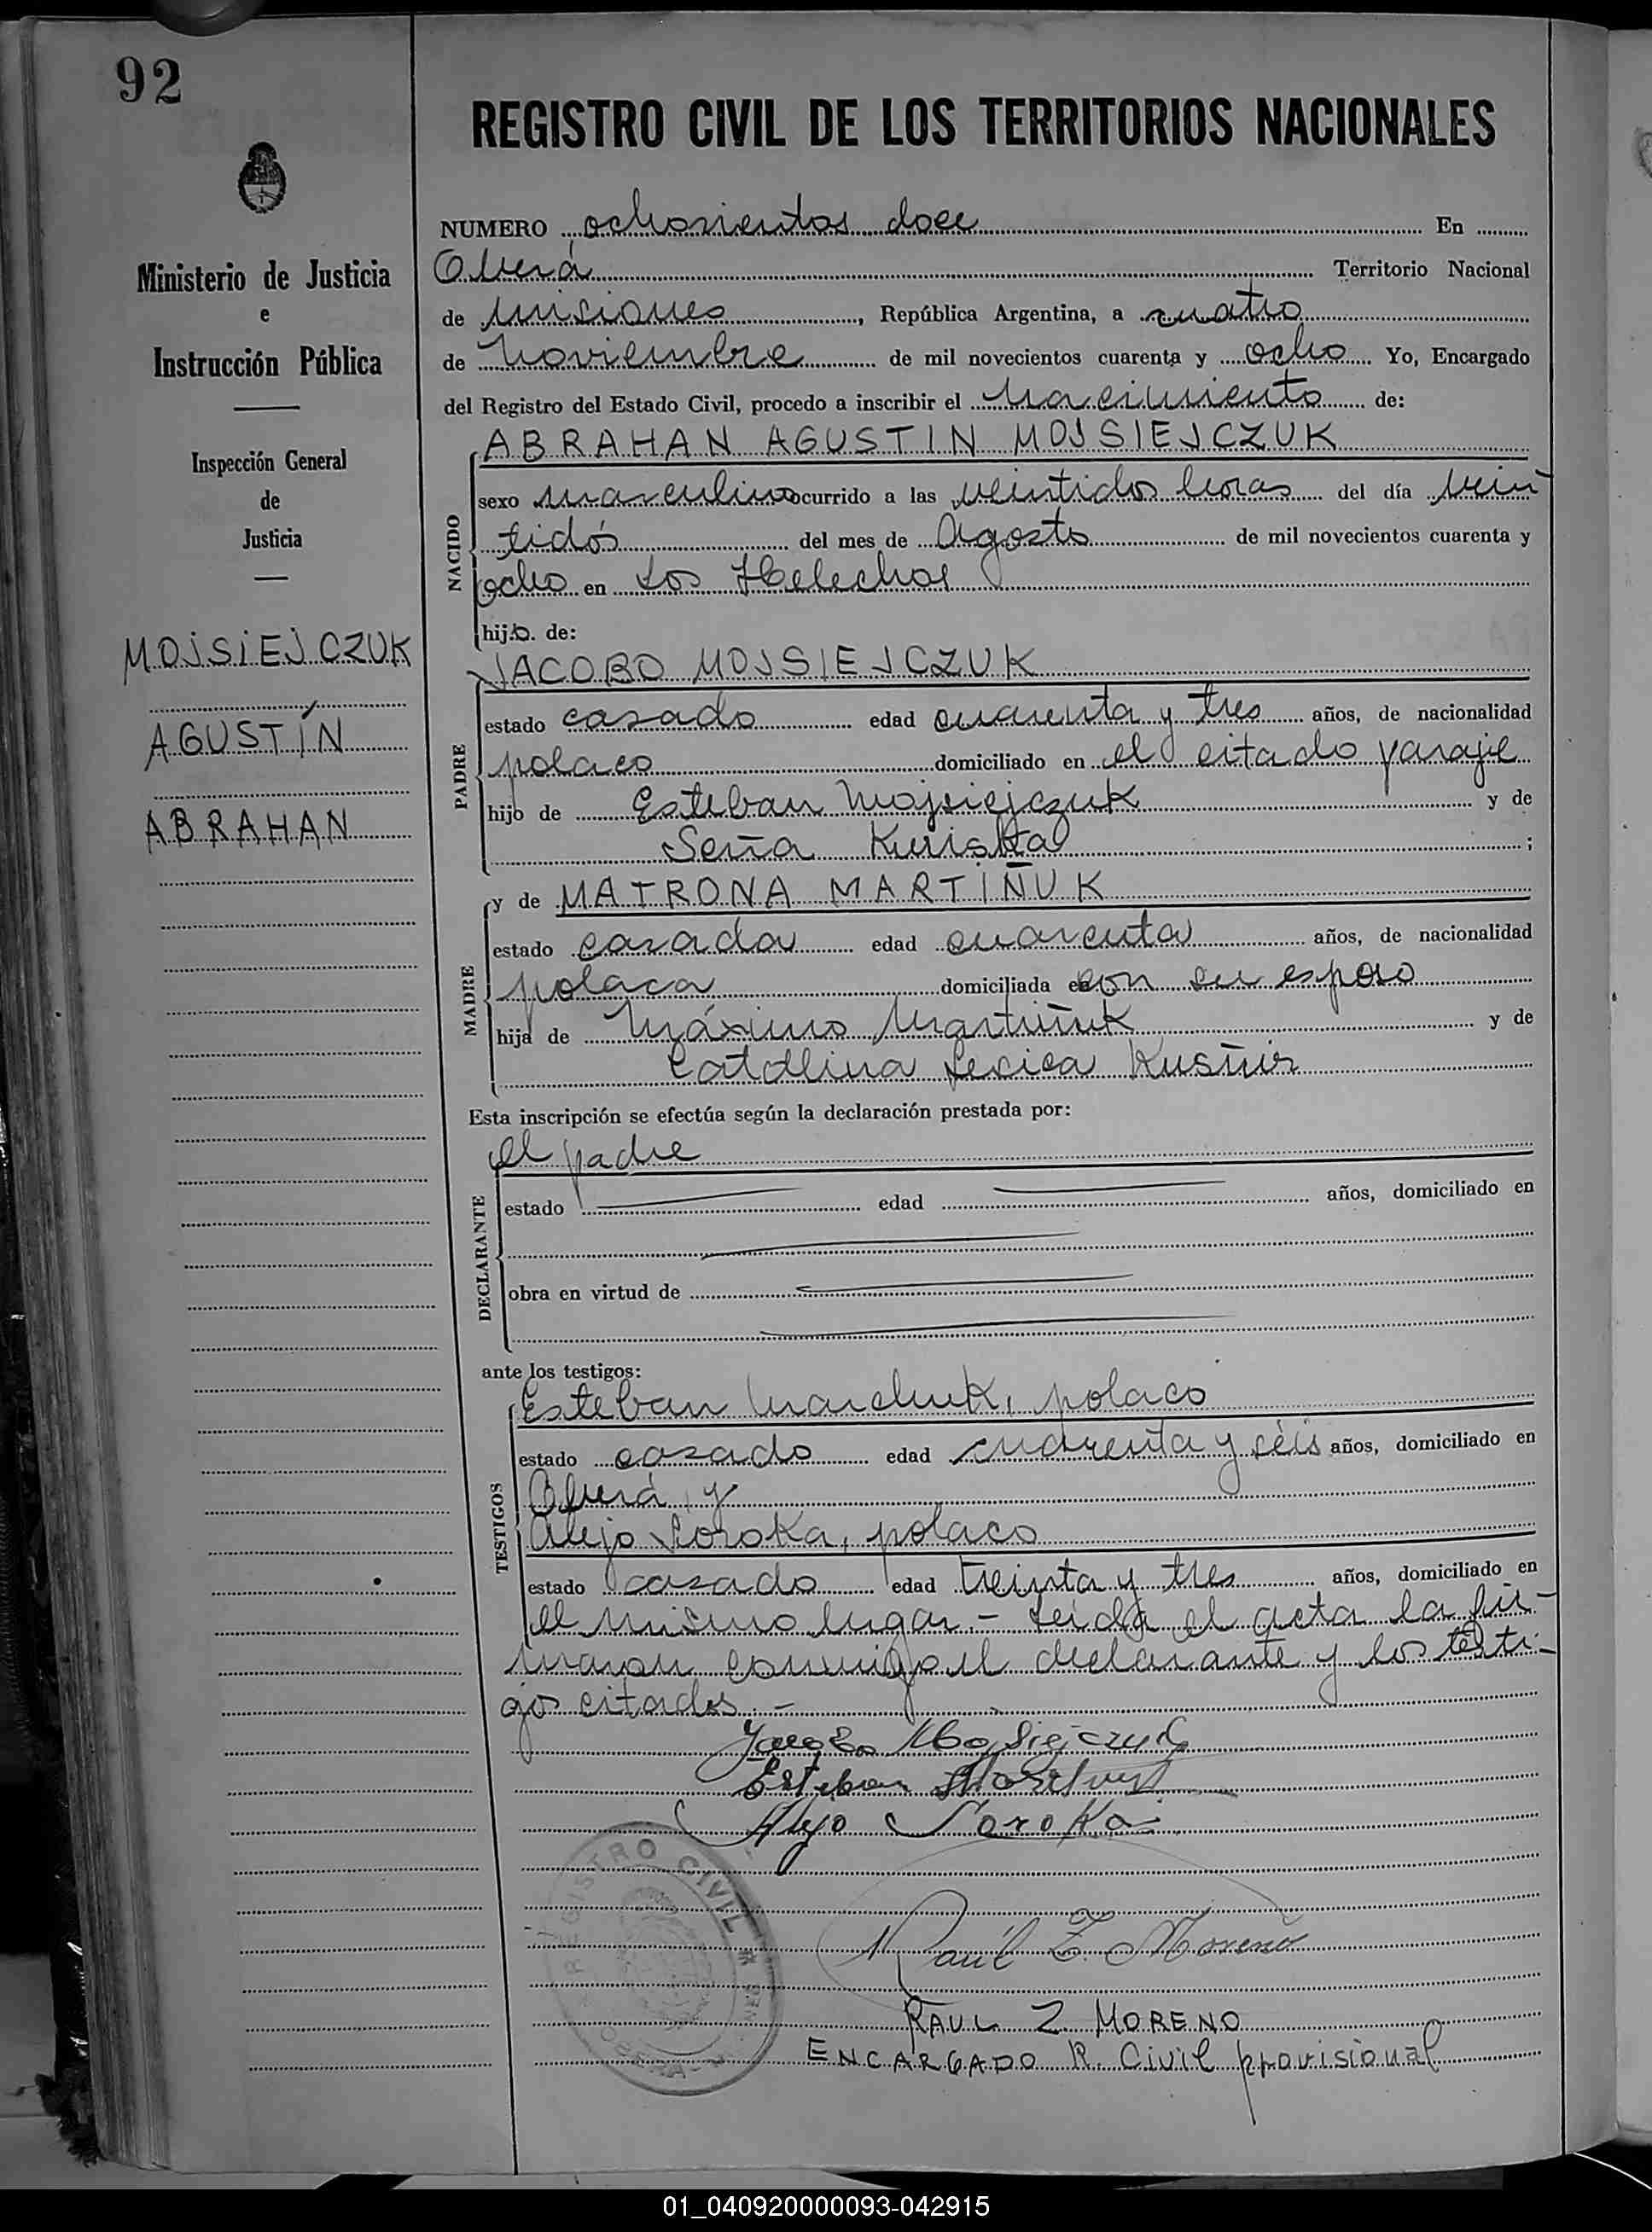 92
REGISTRO CIVIL DE LOS TERRITORIOS NACIONALES
Ministerio de Justicia
e
Instrucción Pública
Inspección General
de
Justicia
MOJSIEJCZUK
AGUSTÍN
ABRAHAN
NUMERO ochosientos doce En
Oberá Territorio Nacional
de Misiones, República Argentina, a cuatro
de Noviembre de mil novecientos cuarenta y ocho Yo, Encargado
del Registro del Estado Civil, procedo a inscribir el Nacimiento de:
NACIDO
ABRAHAN AGUSTIN MOJSIEJCZUK
sexo masculino ocurrido a las veintidos horas del día vein-
tidós del mes de Agosto de mil novecientos cuarenta y
ocho en Los Helechos
hijo. de:
PADRE
JACOBO MOJSIEJCZUK
estado casado edad cuarenta y tres años, de nacionalidad
polaco domiciliado en el citado paraje
hijo de Esteban Mojsiejczuk y de
Seña ;
MADRE
y de MATRONA MARTIÑUK
estado casada edad cuarenta años, de nacionalidad
polaca domiciliada con su esposo
hija de Máximo Martiñuk y de
Catalina Kusñir
Esta inscripción se efectúa según la declaración prestada por:
DECLARANTE
el padre
estado edad años, domiciliado en
obra en virtud de
ante los testigos:
TESTIGOS
Esteban Marchuk, polaco
estado casado edad cuarenta y séis años, domiciliado en
Oberá y
Alejo Soroka, polaco
estado casado edad treinta y tres años, domiciliado en
el mismo lugar.- Leída el acta la fir-
maron conmigo el declarante y los testi-
gos citados.-
Jacobo Mojsiejczuk
Esteban
Alejo Soroka
REGISTRO CIVIL
Raúl Z. Moreno
RAUL Z. MORENO
ENCARGADO R. Civil provisional
01_040920000093-042915